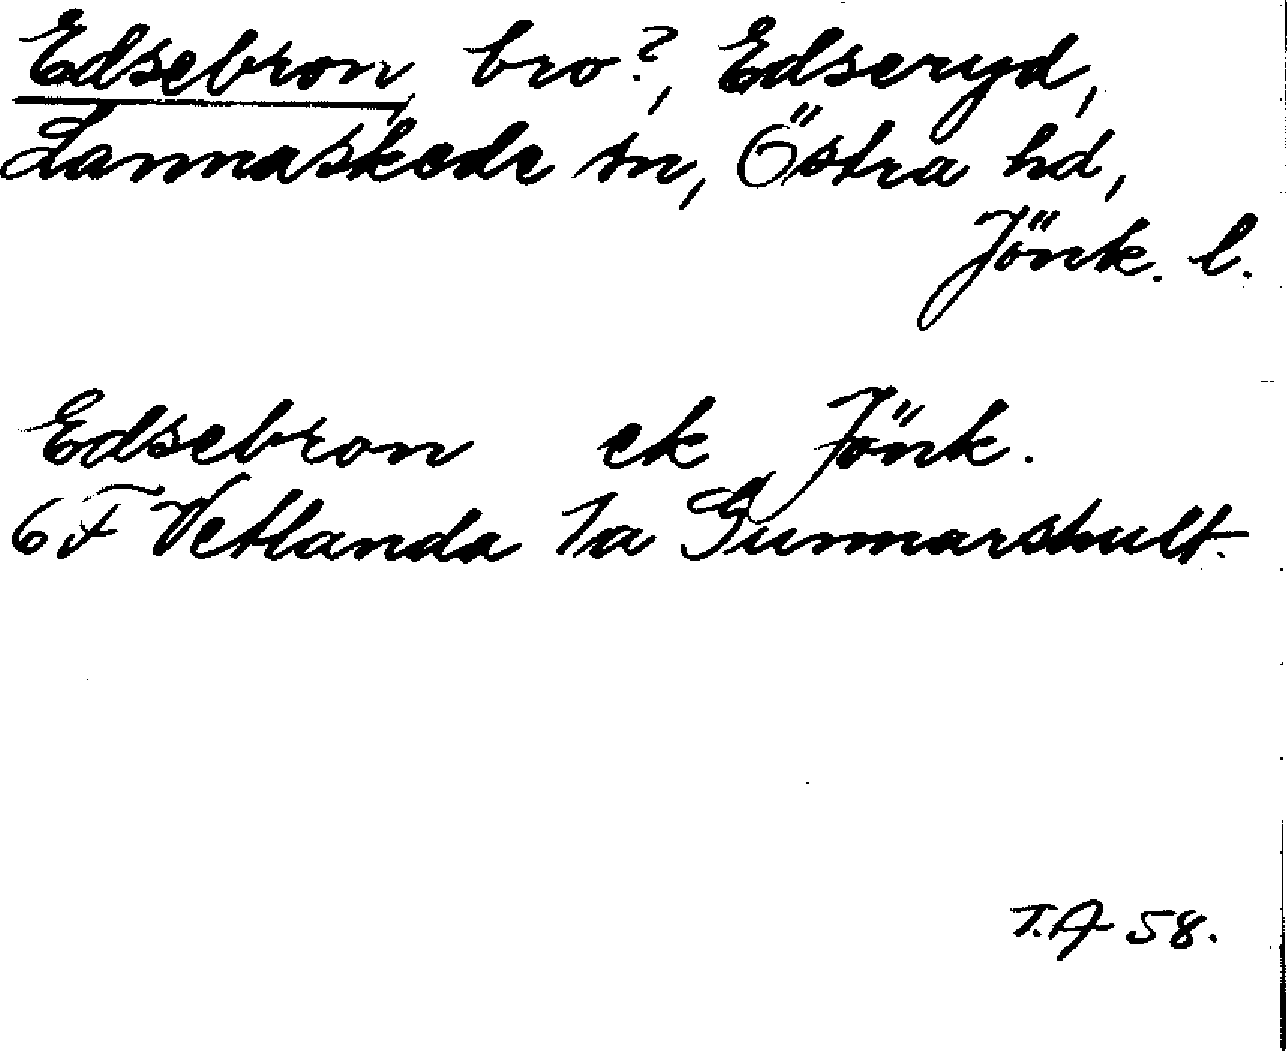 Edsebron, bro?, Edseryd,
Lannaskede sn, Östra hd,
Jönk. l.
Edsebron ek Jönk.
6F Vetlanda 1a Gunnarshult.
T.A 58.